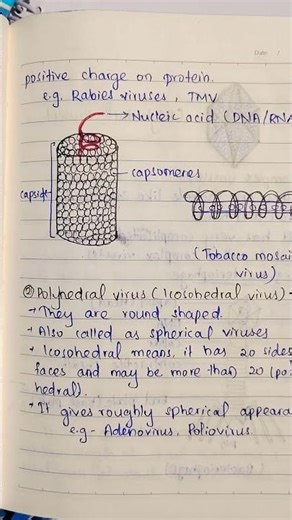 Date: /
positive charge on protein.
e.g. Rabies viruses, TMV
Nucleic acid (DNA/RNA
capsid
capsomeres
(Tobacco mosai
virus)
② Polyhedral virus (Icosohedral virus) -
They are round shaped.
Also called as spherical viruses
Icosohedral means, it has 20 sides
faces and may be more than 20 (po
hedral).
It gives roughly spherical appeara
e.g- Adenovirus, Poliovirus